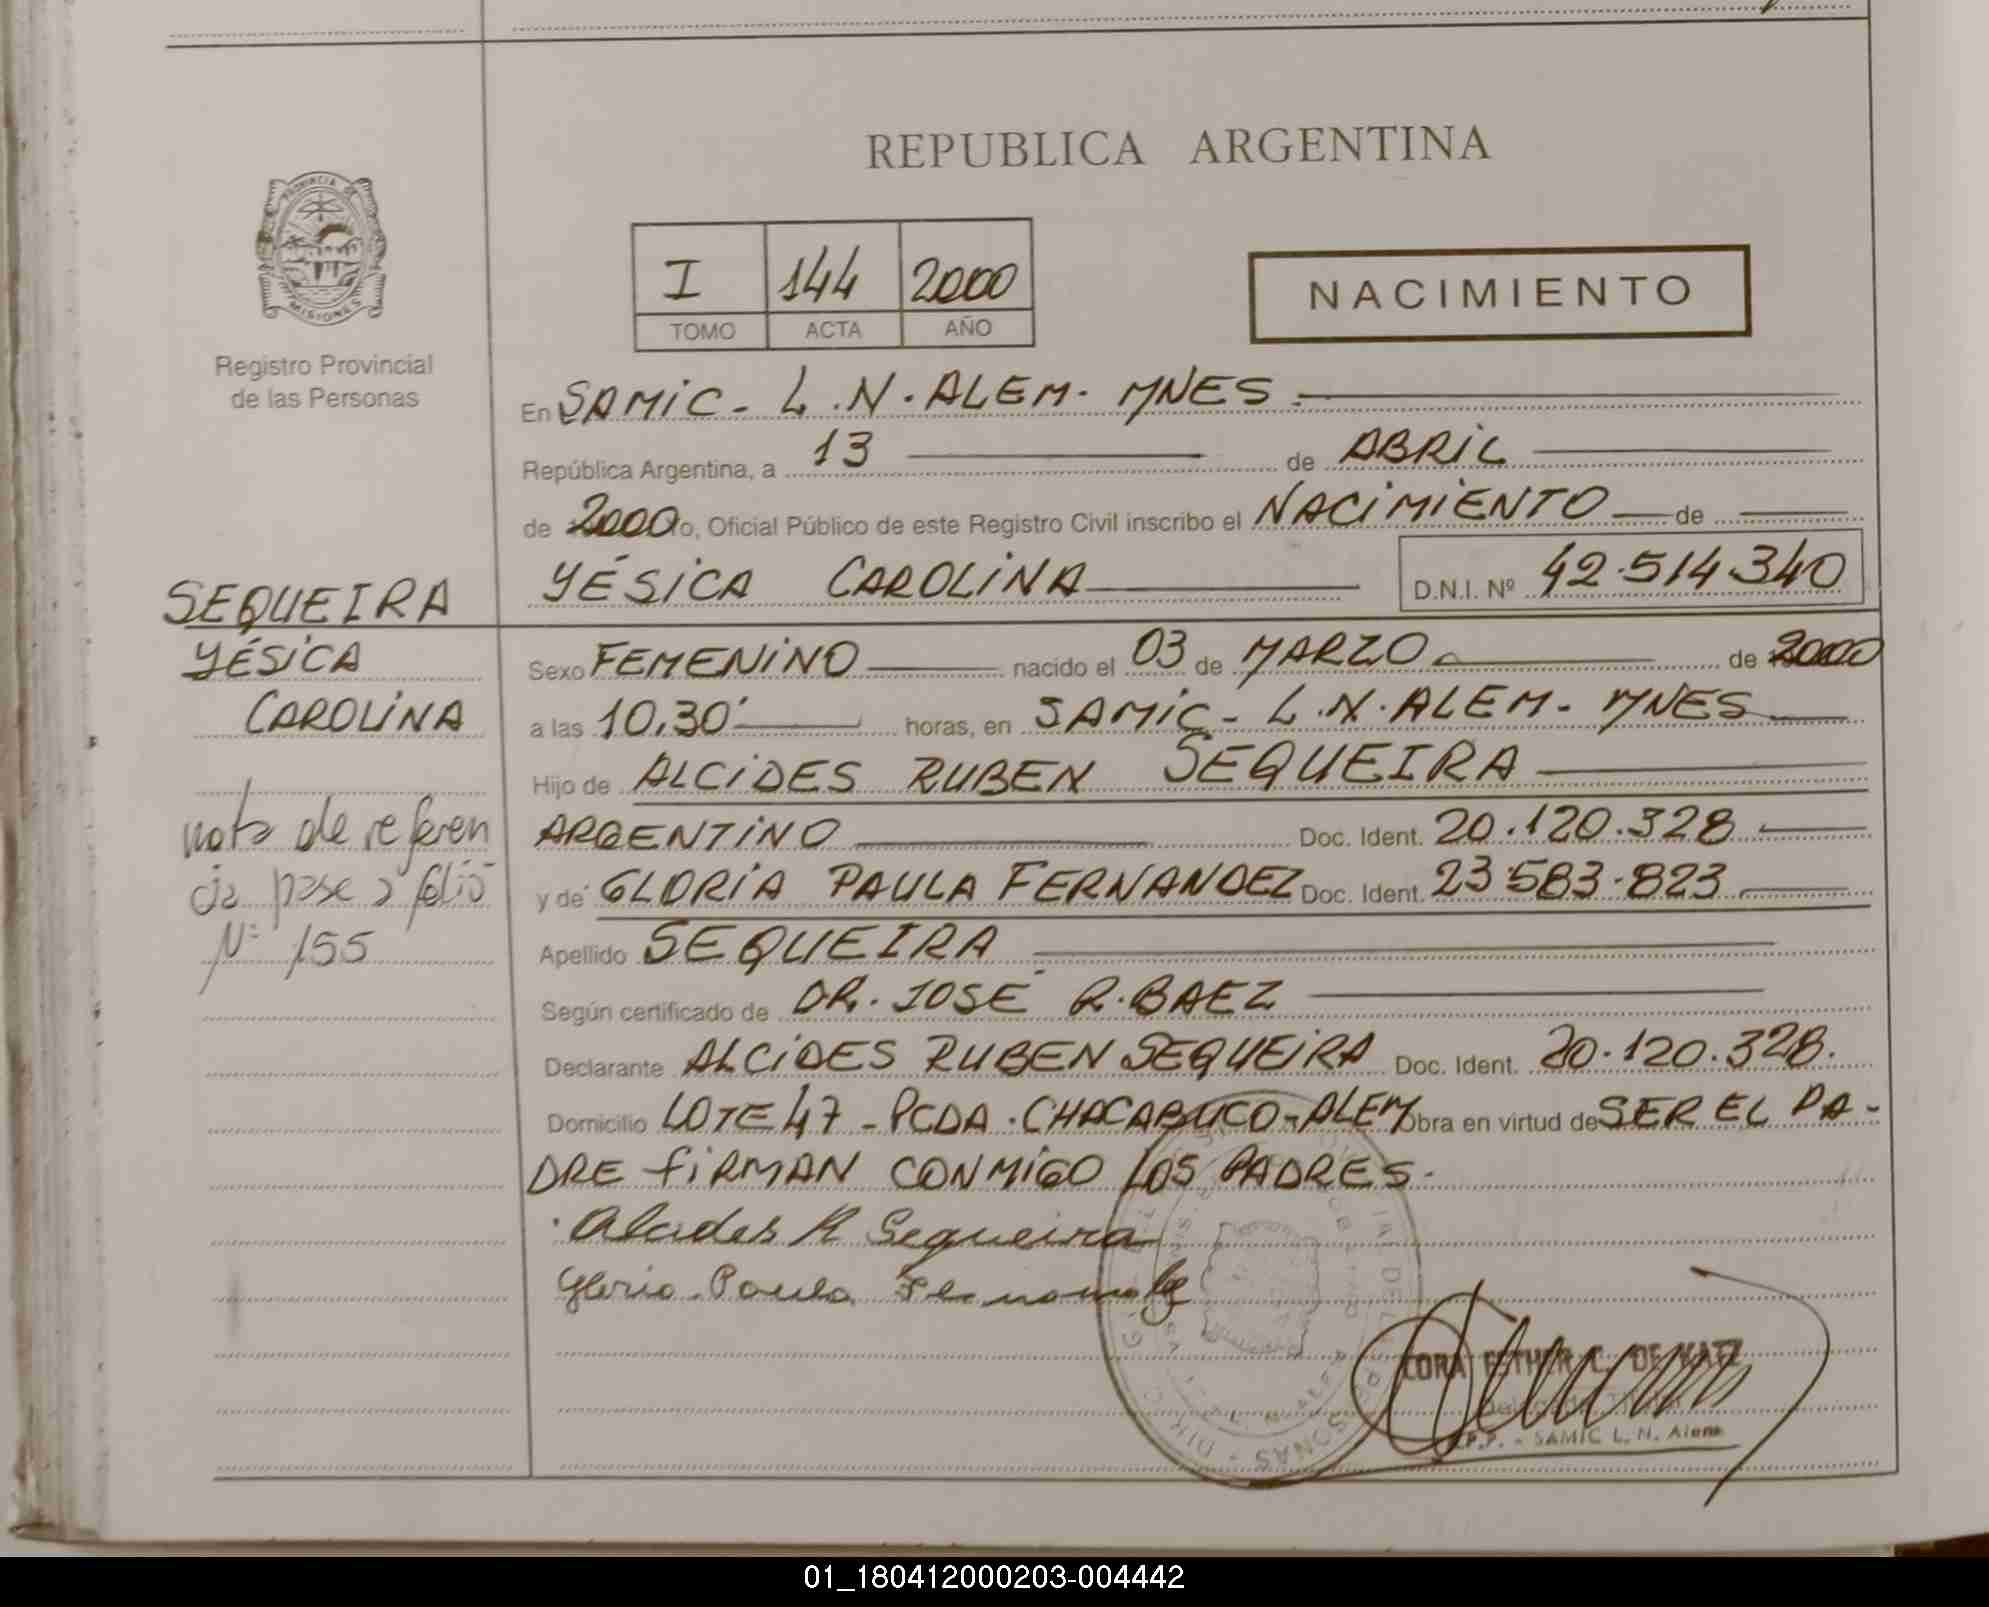 REPUBLICA ARGENTINA
PROVINCIA DE
MISIONES
Registro Provincial
de las Personas
I 144 2000
TOMO ACTA AÑO
NACIMIENTO
En SAMIC - L.N. ALEM - MNES
República Argentina, a 13 de ABRIL
de 2000 o, Oficial Público de este Registro Civil inscribo el NACIMIENTO de
YÉSICA CAROLINA D.N.I. Nº 42.514.340
SEQUEIRA
YÉSICA
CAROLINA
nota de referen
cia pase a folio
Nº 155
Sexo FEMENINO nacido el 03 de MARZO de 2000
a las 10,30' horas, en SAMIC - L.N. ALEM - MNES
Hijo de ALCIDES RUBEN SEQUEIRA
ARGENTINO Doc. Ident. 20.120.328
y de GLORIA PAULA FERNANDEZ Doc. Ident. 23.583.823
Apellido SEQUEIRA
Según certificado de DR. JOSÉ R. BAEZ
Declarante ALCIDES RUBEN SEQUEIRA Doc. Ident. 20.120.328.
Domicilio LOTE 47 - PCDA. CHACABUCO - ALEM Obra en virtud de SER EL PA-
DRE FIRMAN CONMIGO LOS PADRES.
Alcides R Sequeira
Gloria Paula Fernandez
CORA ESTHER C. DE KATZ
SAMIC L. N. Alem
01_180412000203-004442